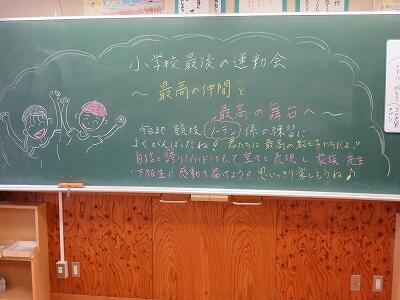 小学校最後の運動会
～最高の仲間と
最高の舞台へ～
今日まで 競技 ソーラン 係の練習に
よくがんばったね！ 君たちは 最高の教え子たちだよ！
自信と誇り(プライド)をもって 全てを表現し 家族 先生
下級生に 感動を届けよう！ 思いっきり楽しもうね♪